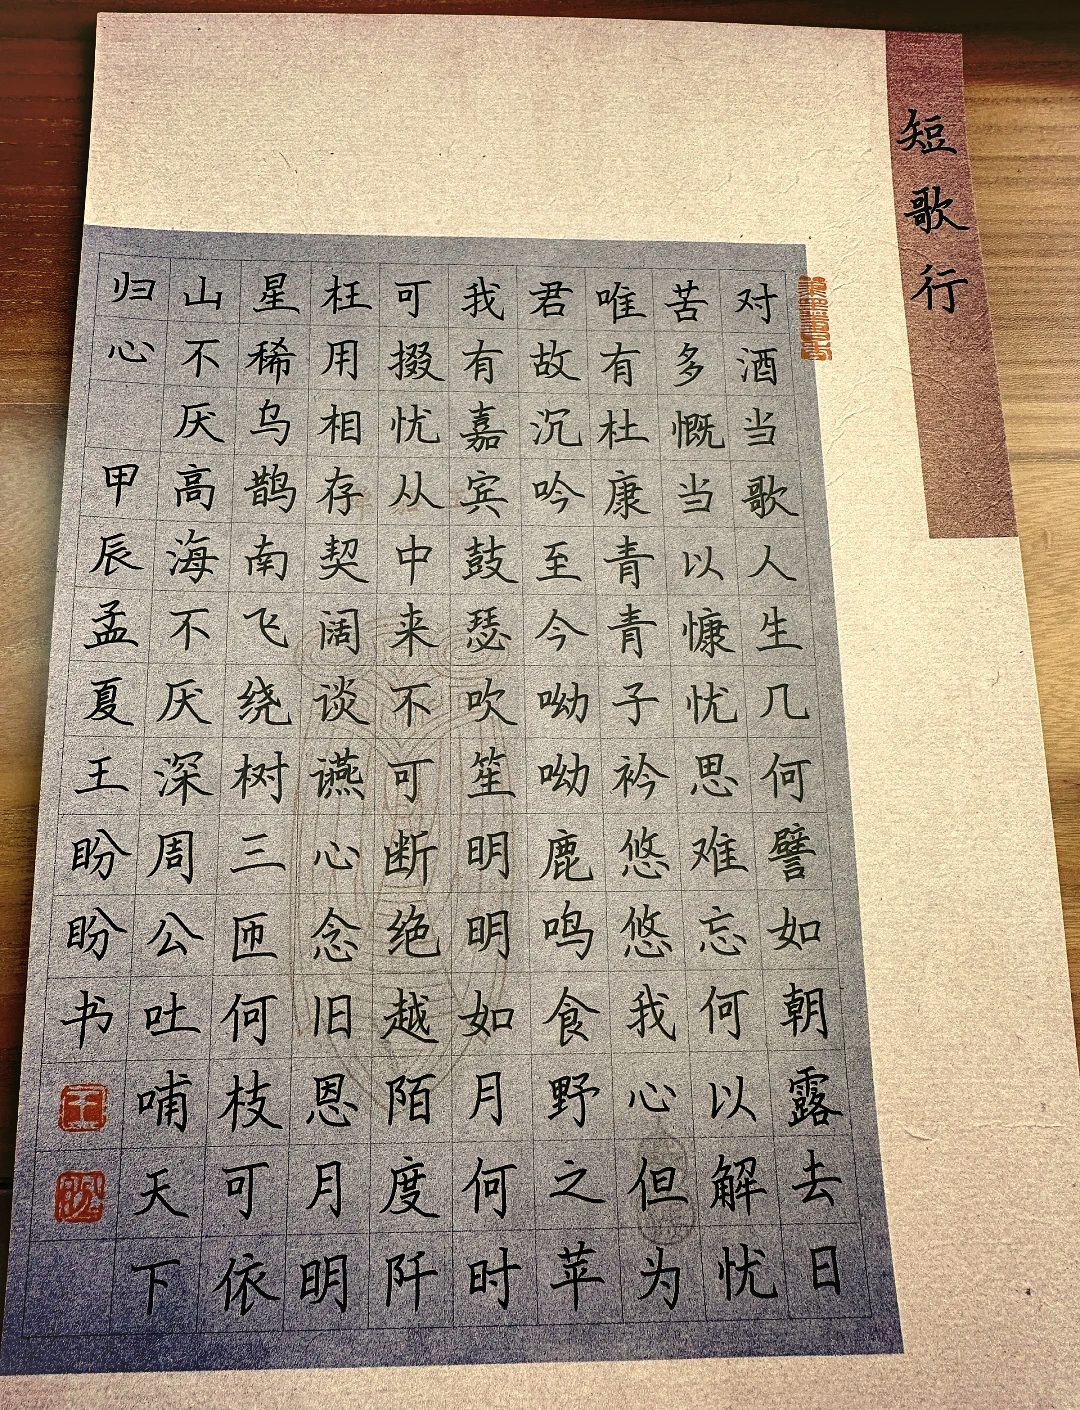 短歌行
对酒当歌人生几何譬如朝露去日
苦多慨当以慷忧思难忘何以解忧
唯有杜康青青子衿悠悠我心但为
君故沉吟至今呦呦鹿鸣食野之苹
我有嘉宾鼓瑟吹笙明明如月何时
可掇忧从中来不可断绝越陌度阡
枉用相存契阔谈䜩心念旧恩月明
星稀乌鹊南飞绕树三匝何枝可依
山不厌高海不厌深周公吐哺天下
归心 甲辰孟夏王盼盼书
王
盼